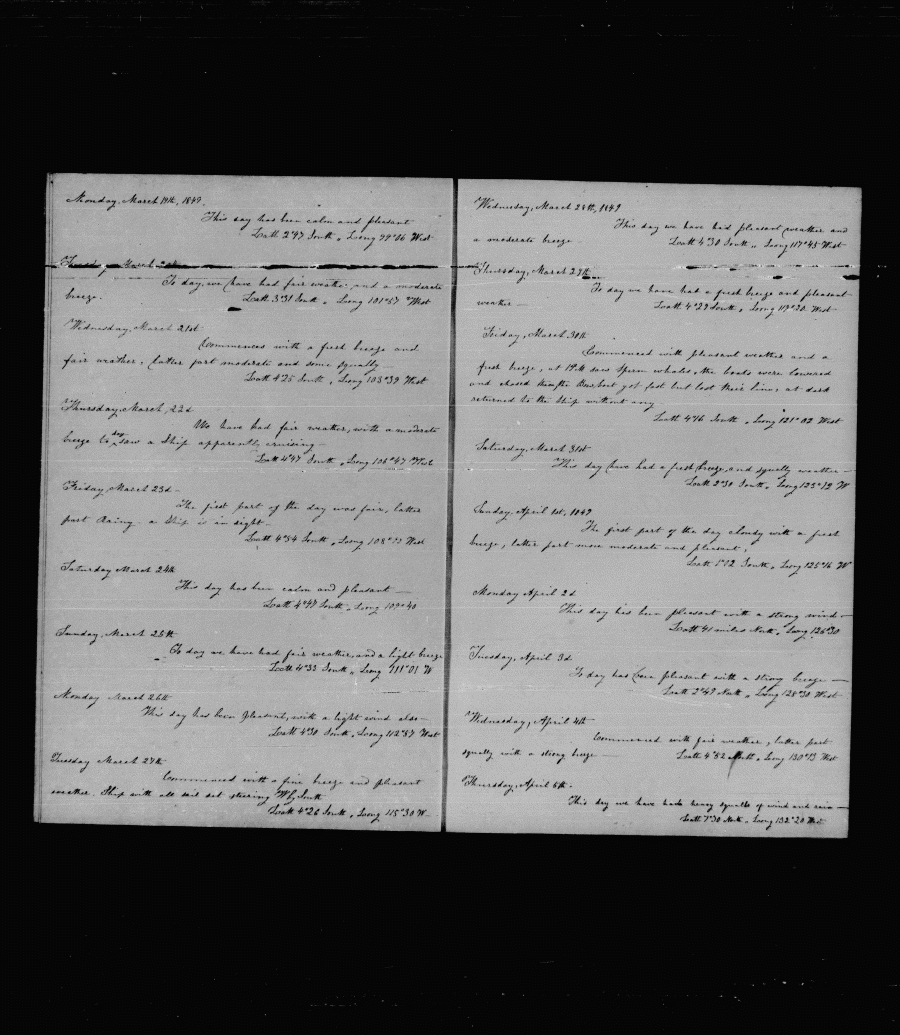 Monday, March 19th, 1849.
This day has been calm and pleasant
Latt 2°47 South, Long 99°06 West
Tuesday March 20th
To day, we have had fair weather and a moderate
breeze. Latt 3°31 South, Long 101°57 West
Wednesday, March 21st
Commences with a fresh breeze and
fair weather, latter part moderate and some squally
Latt 4°25 South, Long 103°39 West
Thursday, March, 22d
We have had fair weather, with a moderate
breeze to day saw a Ship apparently cruising
Latt 4°47 South, Long 106°47 West
Friday, March 23d
The first part of the day was fair, latter
part Rainy a Ship is in sight
Latt 4°54 South, Long West
Saturday March 24th
This day has been calm and pleasant
Latt 4°47 South, Long 109°40
Sunday, March 25th
To day we have had fair weather, and a light breeze
Latt 4°33 South, Long 111°01 W
Monday March 26th
This day has been pleasant, with a light wind also
Latt 4°30 South, Long 112°57 West
Tuesday March 27th
Commenced with a fine breeze and pleasant
weather. Ship with all sail set steering W by South
Latt 4°26 South, Long 115°30 W
Wednesday, March 28th, 1849
This day we have had pleasant weather and
a moderate breeze Latt 4°30 South, Long 117°45 West
Thursday, March 29th
To day we have had a fresh breeze and pleasant
weather Latt 4°29 South, Long 119°20 West
Friday, March 30th
Commenced with pleasant weather and a
fresh breeze, at saw Sperm whales, the boats were lowered
and chased them the Bow boat got fast but lost their line, at dark
returned to the Ship without any
Latt 4°16 South, Long 121°02 West
Saturday, March 31st
This day have had a fresh breeze, and squally weather
Latt 2°30 South, Long 123°12 W
Sunday, April 1st, 1849
The first part of the day cloudy with a fresh
breeze, latter part more moderate and pleasant,
Latt 1°02 South, Long 125°16 W
Monday April 2d
This day has been pleasant with a strong wind
Latt 41 miles North, Long 126°30
Tuesday, April 3d
To day has been pleasant with a strong breeze
Latt 2°49 North, Long 128°30 West
Wednesday, April 4th
Commenced with fair weather, latter part
squally with a strong breeze Latt 4°52 North, Long 130°13 West
Thursday, April 5th
This day we have had heavy squalls of wind and rain
Latt 7°30 North, Long 132°20 West